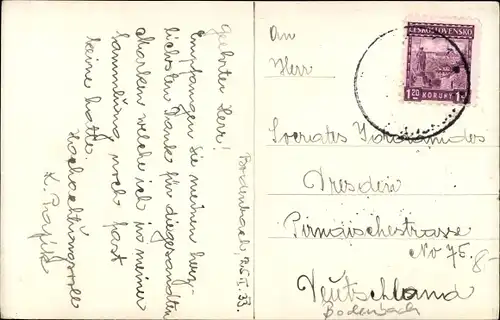 Bodenbach, 25.II.33.
Geehrter Herr!
Empfangen Sie meinen herz-
lichsten Dank für die gesandten
Marken welche ich in meiner
Sammlung noch fast
keine hatte.
Hochachtungsvoll
ČESKOSLOVENSKO
1.20 KORUNY 1.20
An
Herr
Socrates
Dresden
Pirnaischestrasse
No 75.
8-
Deutschland
Bodenbach